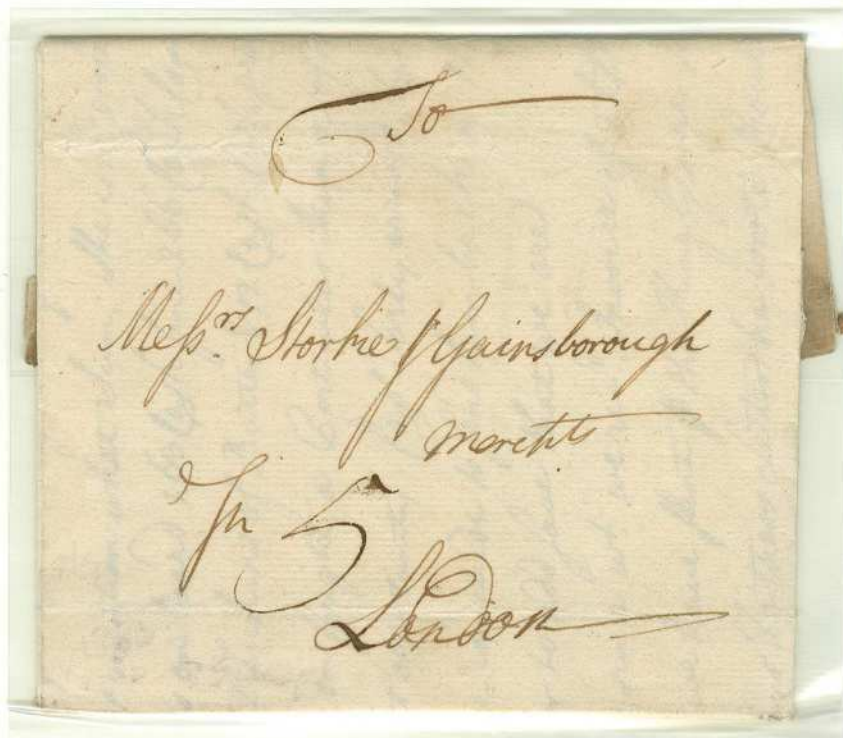 To
Messrs. Storke & Gainsborough
Merchts
In 5
London